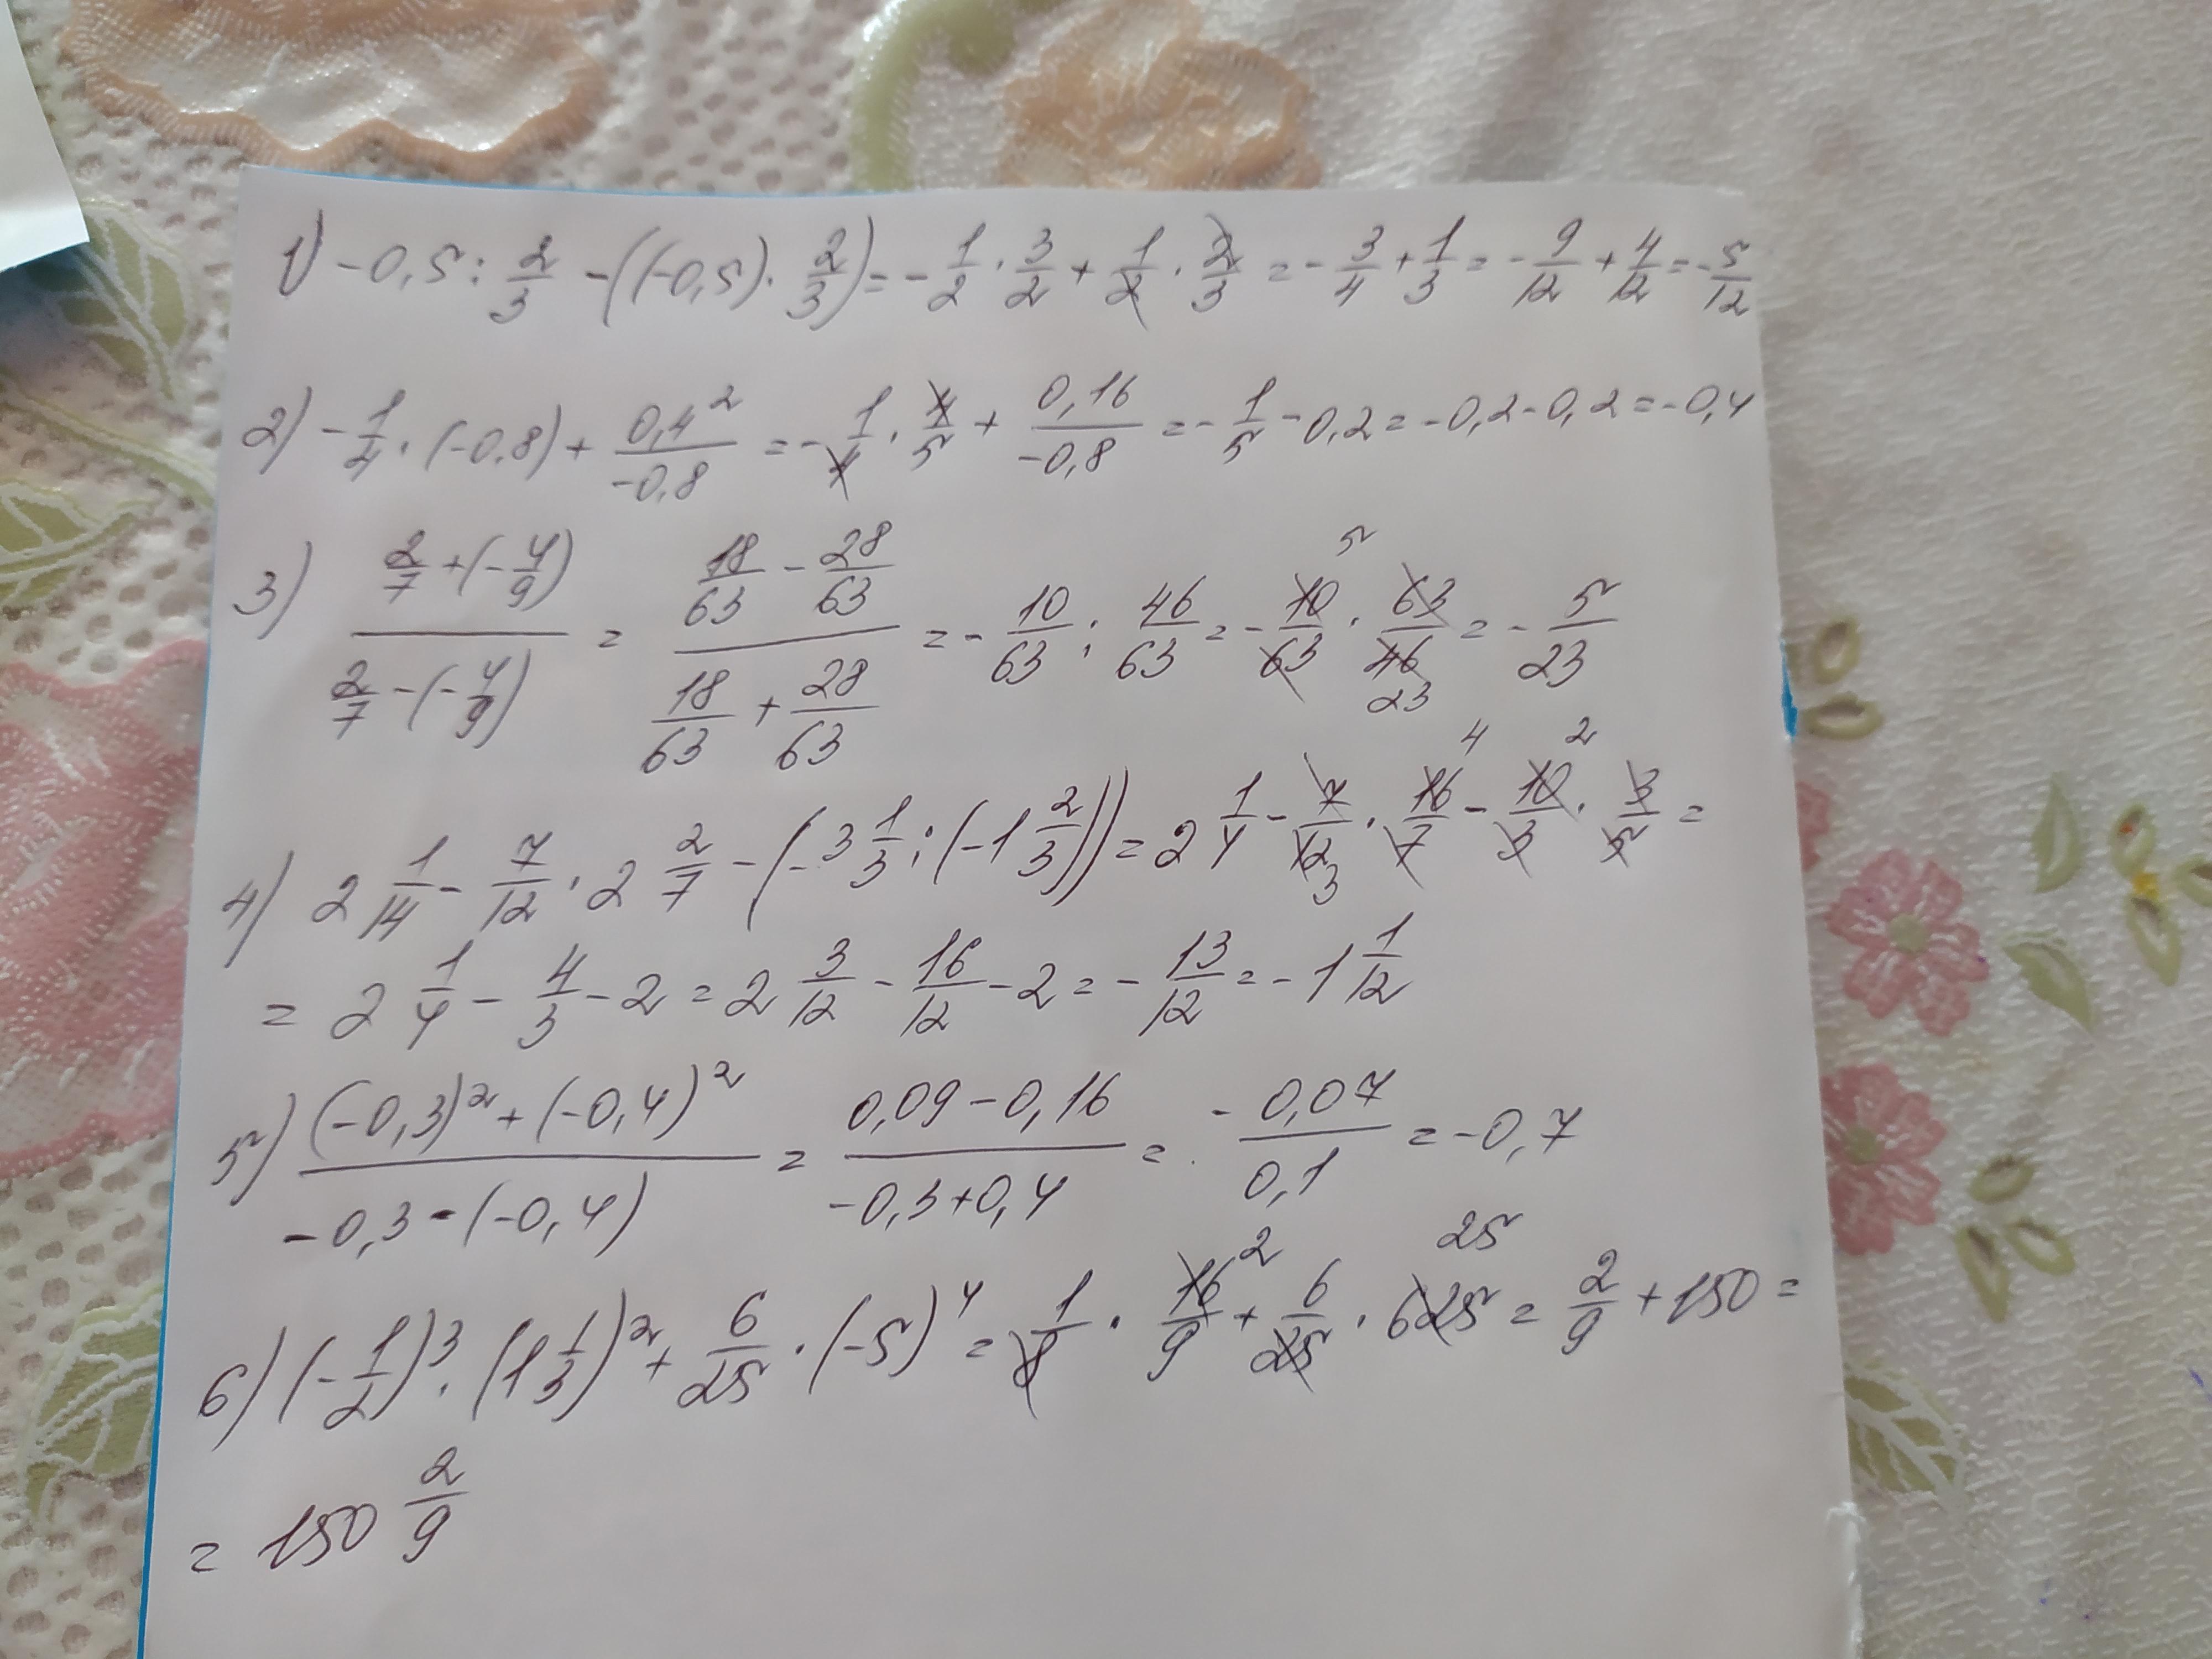 1) -0,5 : 2/3 - ((-0,5) · 2/3) = - 1/2 · 3/2 + 1/2 · 2/3 = - 3/4 + 1/3 = - 9/12 + 4/12 = - 5/12
2) - 1/4 · (-0,8) + 0,4²/-0,8 = - 1/4 · 4/5 + 0,16/-0,8 = - 1/5 - 0,2 = -0,2 - 0,2 = -0,4
3) (2/7 + (- 4/9))/(2/7 - (- 4/9)) = (18/63 - 28/63)/(18/63 + 28/63) = - 10/63 : 46/63 = - 10/63 · 63/46 = - 5/23
5
23
4) 2 1/14 - 7/12 · 2 2/7 - (- 3 1/3 : (-1 2/3)) = 2 1/4 - 7/12 · 16/7 - 10/3 · 3/5 =
4 2
3
= 2 1/4 - 4/3 - 2 = 2 3/12 - 16/12 - 2 = - 13/12 = - 1 1/12
5) ((-0,3)² + (-0,4)²)/(-0,3 - (-0,4)) = (0,09 - 0,16)/(-0,3 + 0,4) = - 0,07/0,1 = -0,7
6) (- 1/2)³ · (1 1/3)² + 6/25 · (-5)⁴ = 1/8 · 16/9 + 6/25 · 625 = 2/9 + 150 =
2 25
= 150 2/9